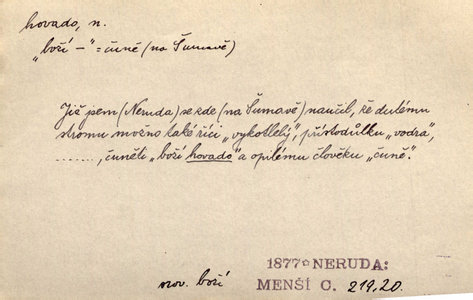 hovado, n.
"boží –" = čuně (na Šumavě)
Již jsem (Neruda) se zde (na Šumavě) naučil, že dutému
stromu možno také říci "vykotlelý", přístodůlku "vodra",
........, čuněti "boží hovado" a opilému člověku "čuně".
1877 NERUDA:
srov. boží
MENŠÍ C. 219,20.